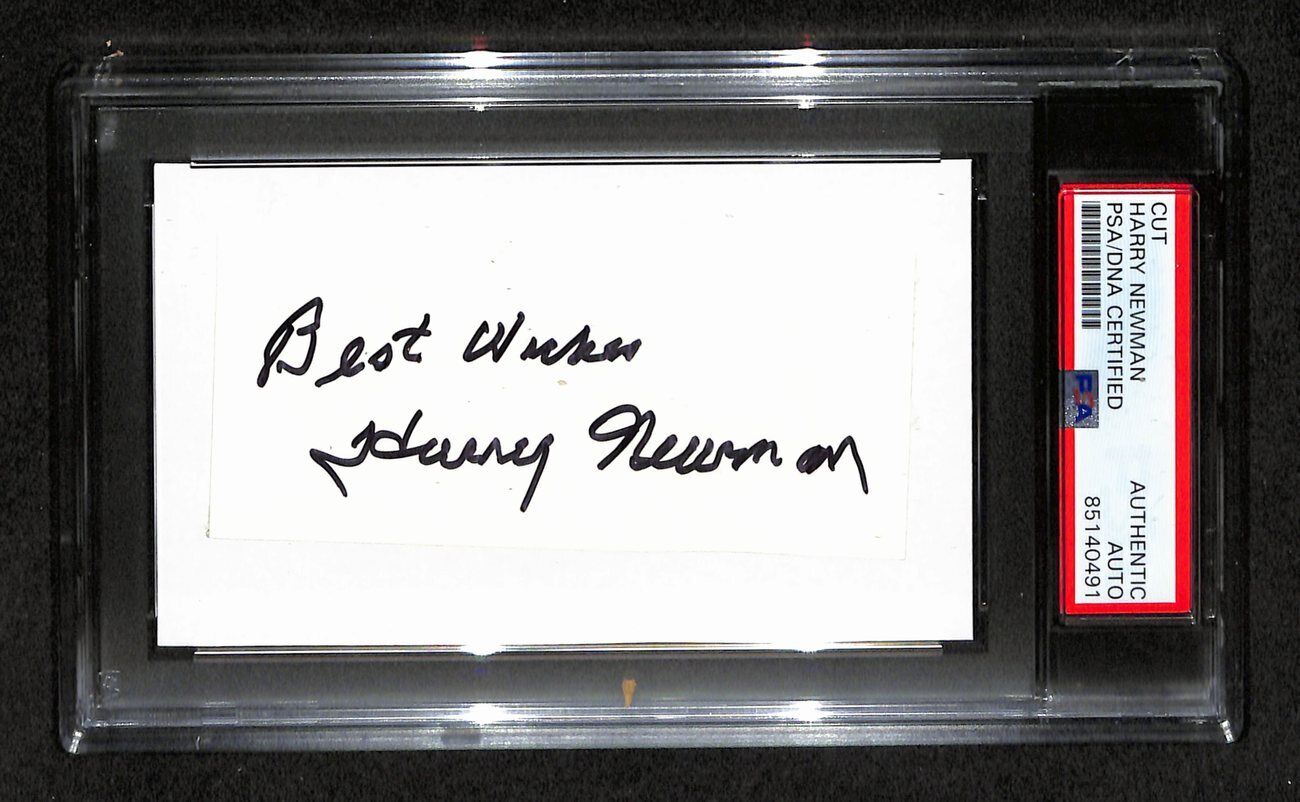 Best Wishes
Harry Newman
CUT
HARRY NEWMAN
PSA/DNA CERTIFIED
AUTHENTIC
AUTO
85140491
PSA